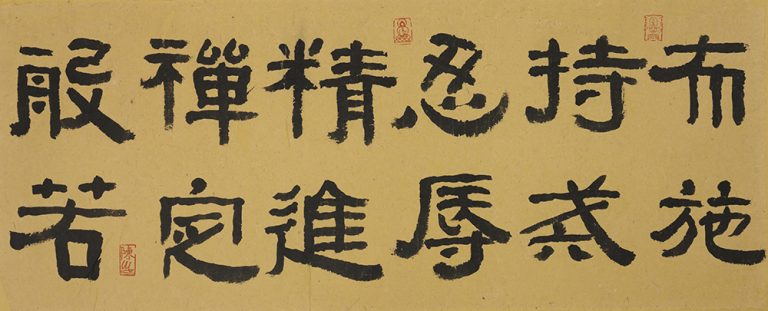 布施
持戒
忍辱
精進
禪定
般若